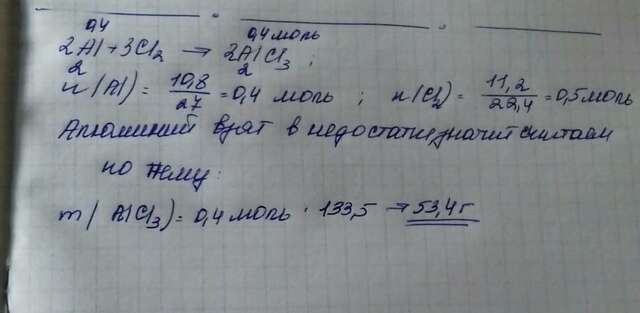 0,4 0,4 моль
2Al + 3Cl₂ → 2AlCl₃ ;
2 2
n(Al) = 10,8/27 = 0,4 моль ; n(Cl₂) = 11,2/22,4 = 0,5 моль
Алюминий взят в недостатке, значит считаем
по нему:
m(AlCl₃) = 0,4 моль · 133,5 → 53,4 г